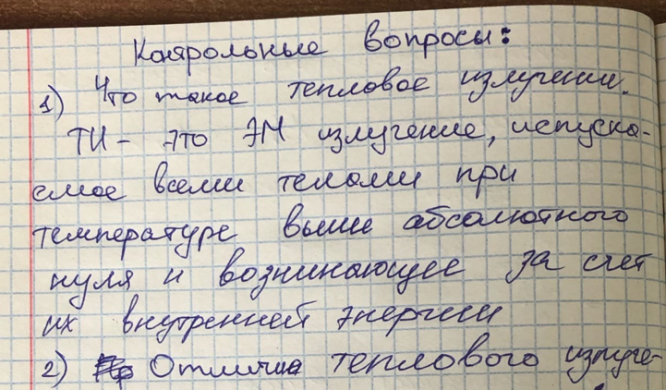 Контрольные вопросы:
1) Что такое тепловое излучении.
ТИ - это ЭМ излучение, испуска-
емое всеми телами при
температуре выше абсолютного
нуля и возникающее за счет
их внутренней энергии
2) Отличия теплового излуче-